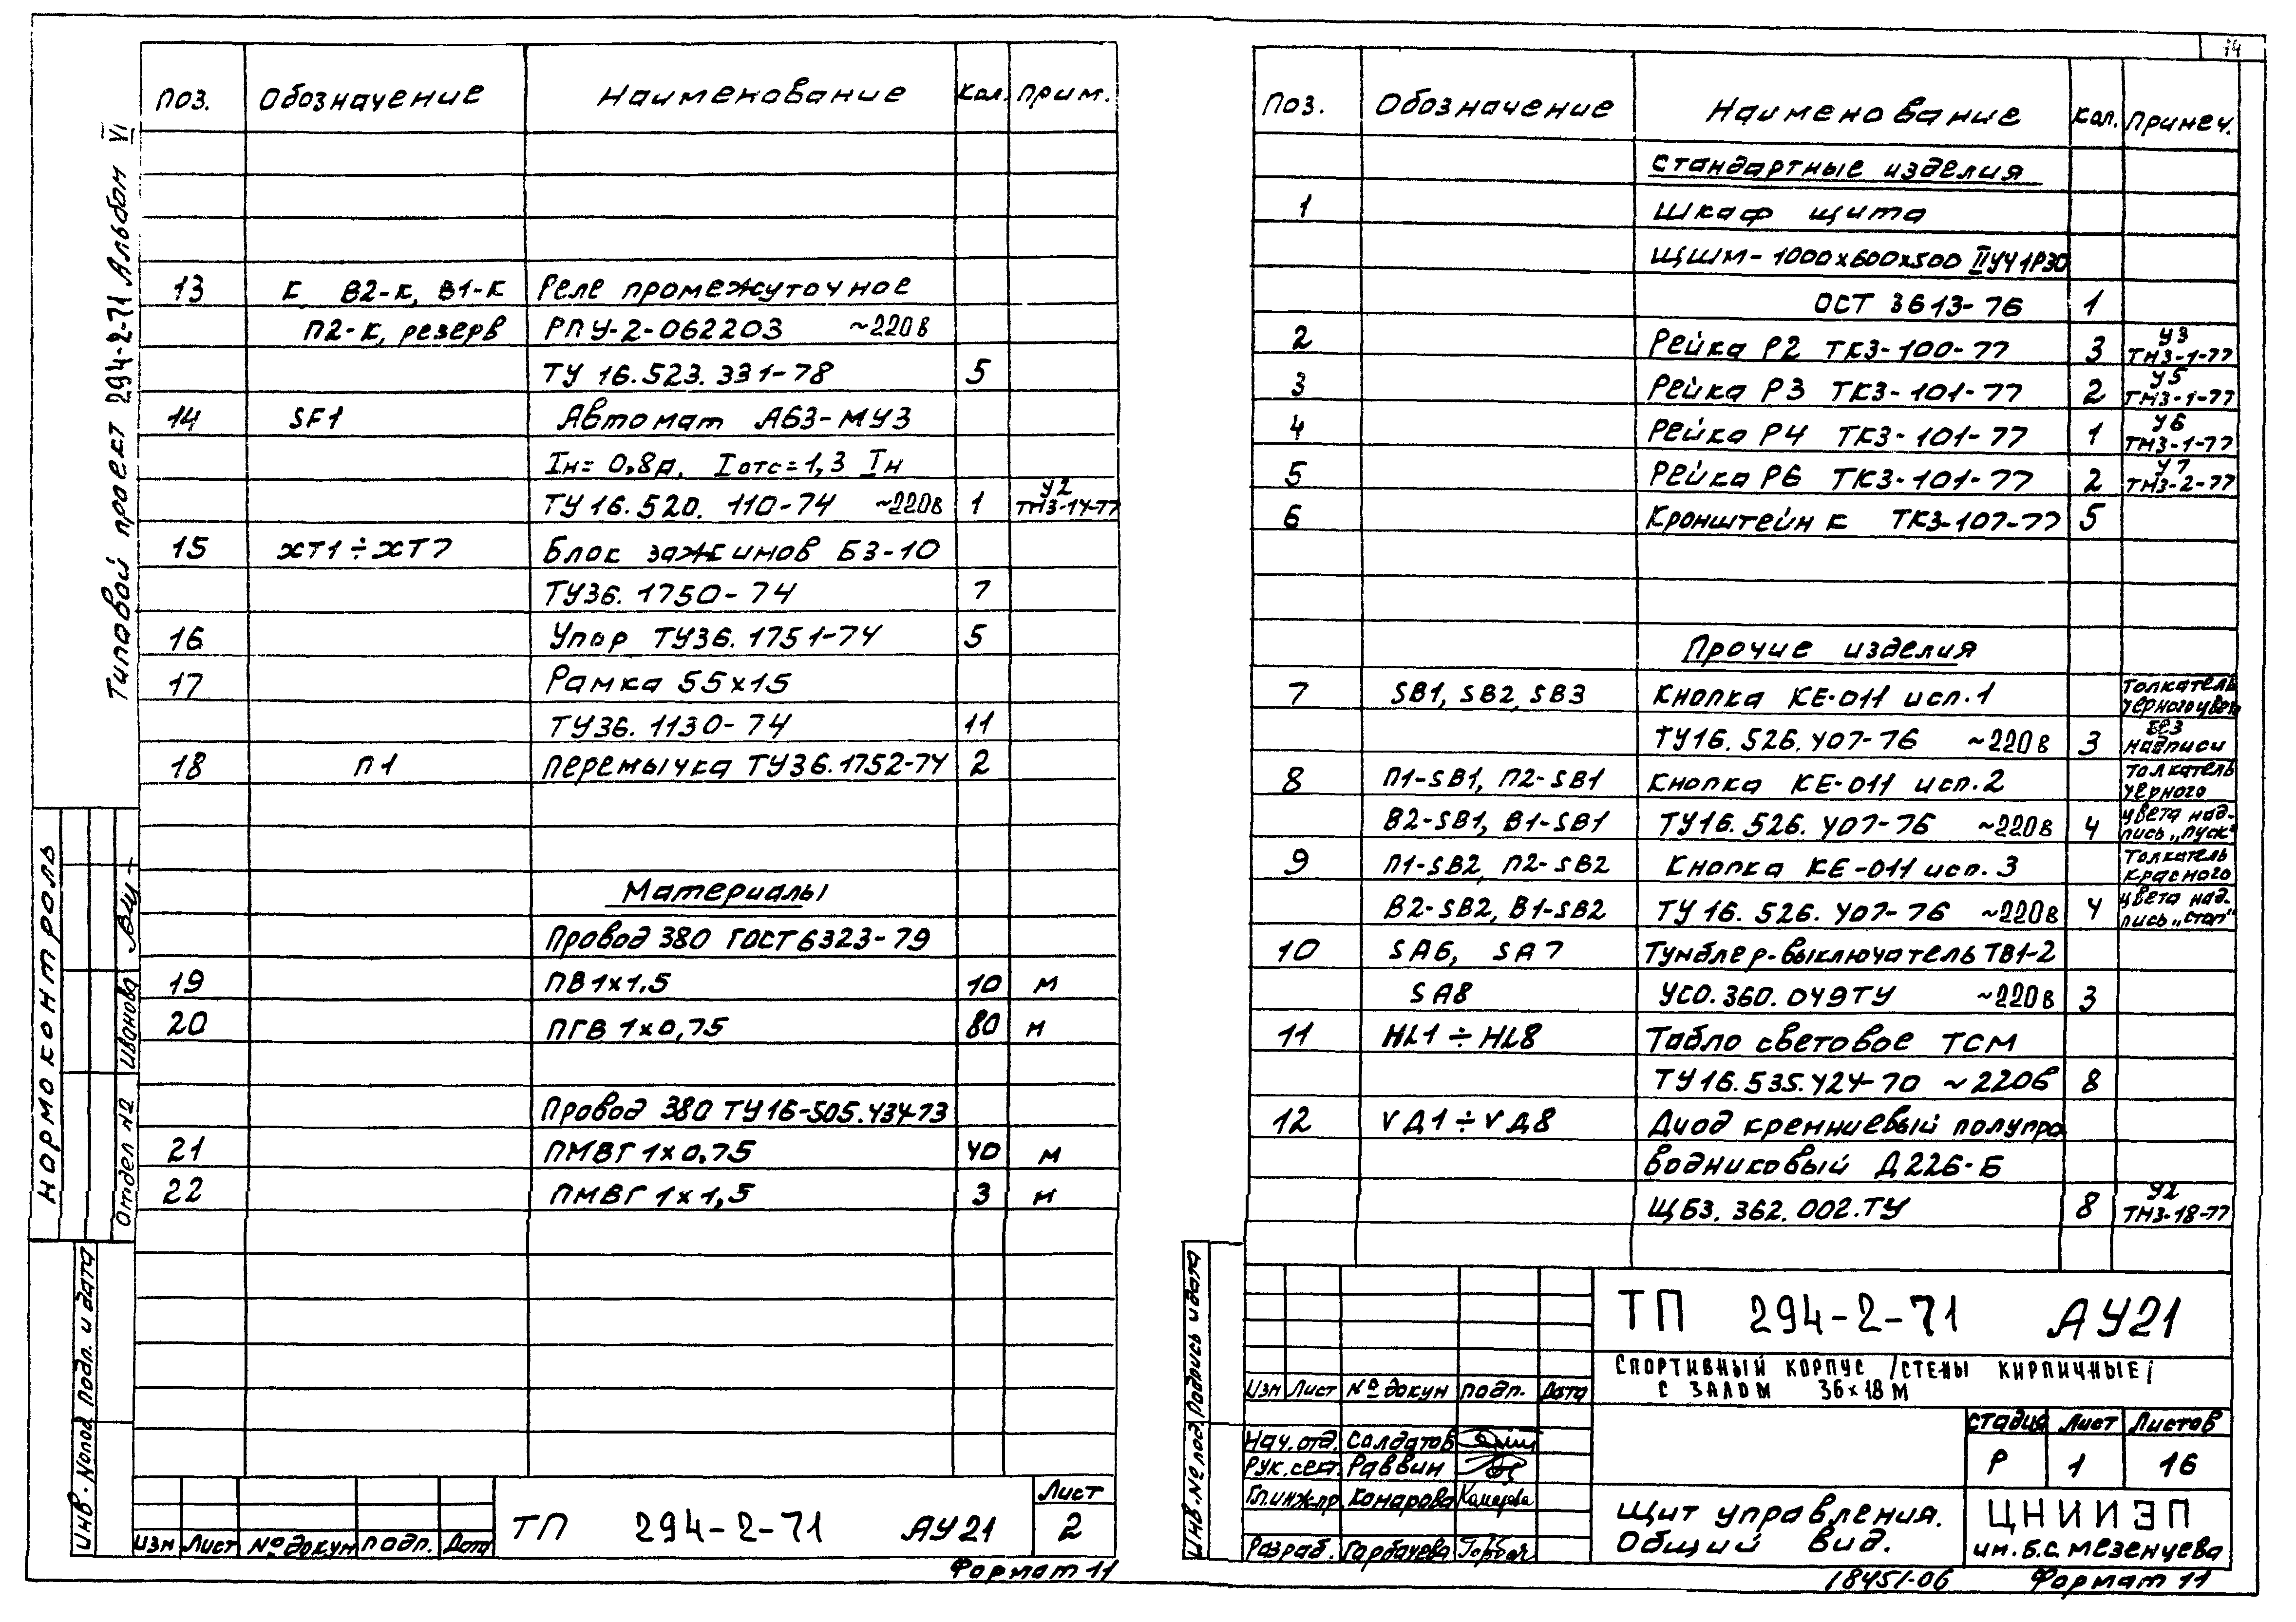 Типовой проект 294-2-71 Альбом VI
Поз. Обозначение Наименование Кол. Прим.
13 К, В2-К, В1-К Реле промежуточное
П2-К, резерв РПУ-2-062203 ~220в
ТУ 16.523.331-78 5
14 SF1 Автомат А63-МУ3
Iн=0,8А, Iотс=1,3 Iн
ТУ 16.520.110-74 ~220в 1 У2 ТМ3-14-77
15 ХТ1÷ХТ7 Блок зажимов БЗ-10
ТУ36.1750-74 7
16 Упор ТУ36.1751-74 5
17 Рамка 55х15
ТУ36.1130-74 11
18 П1 Перемычка ТУ36.1752-74 2
Материалы
Провод 380 ГОСТ 6323-79
19 ПВ 1х1,5 10 м
20 ПГВ 1х0,75 80 м
Провод 380 ТУ16-505.434-73
21 ПМВГ 1х0.75 40 м
22 ПМВГ 1х1,5 3 м
Нормоконтроль
Отдел №2 Иванова
Инв. №под. Подп. и дата
Изм Лист № докум Подп. Дата
ТП 294-2-71 АУ21
Лист
2
Формат 11
14
Поз. Обозначение Наименование Кол. Примеч.
Стандартные изделия
1 Шкаф щита
ЩШМ-1000х600х500 IIУЧ1Р30
ОСТ 3613-76 1
2 Рейка Р2 ТК3-100-77 3 У3 ТМ3-1-77
3 Рейка Р3 ТК3-101-77 2 У5 ТМ3-1-77
4 Рейка Р4 ТК3-101-77 1 У6 ТМ3-1-77
5 Рейка Р6 ТК3-101-77 2 У7 ТМ3-2-77
6 Кронштейн К ТК3-107-77 5
Прочие изделия
7 SB1, SB2, SB3 Кнопка КЕ-011 исп.1 Толкатель черного цвета
ТУ16.526.407-76 ~220в 3 без надписи
8 П1-SB1, П2-SB1 Кнопка КЕ-011 исп.2 Толкатель черного
В2-SB1, В1-SB1 ТУ16.526.407-76 ~220в 4 цвета надпись „Пуск"
9 П1-SB2, П2-SB2 Кнопка КЕ-011 исп.3 Толкатель красного
В2-SB2, В1-SB2 ТУ16.526.407-76 ~220в 4 цвета надпись „Стоп"
10 SA6, SA7 Тумблер-выключатель ТВ1-2
SA8 УСО.360.049ТУ ~220в 3
11 HL1÷HL8 Табло световое ТСМ
ТУ16.535.424-70 ~220в 8
12 VД1÷VД8 Диод кремниевый полупро
водниковый Д226-Б
ЩБ3.362.002.ТУ 8 У2 ТМ3-18-77
Инв. № под. Подпись и дата
ТП 294-2-71 АУ21
Спортивный корпус /стены кирпичные/
с залом 36х18м
Изм Лист № докум Подп. Дата
Нач.отд. Солдатов
Рук.сект. Раввин
Гл.инж.пр Комарова
Разраб. Горбачева
Стадия Лист Листов
Р 1 16
Щит управления.
Общий вид.
ЦНИИЭП
им. Б.С. Мезенцева
18451-06
Формат 11